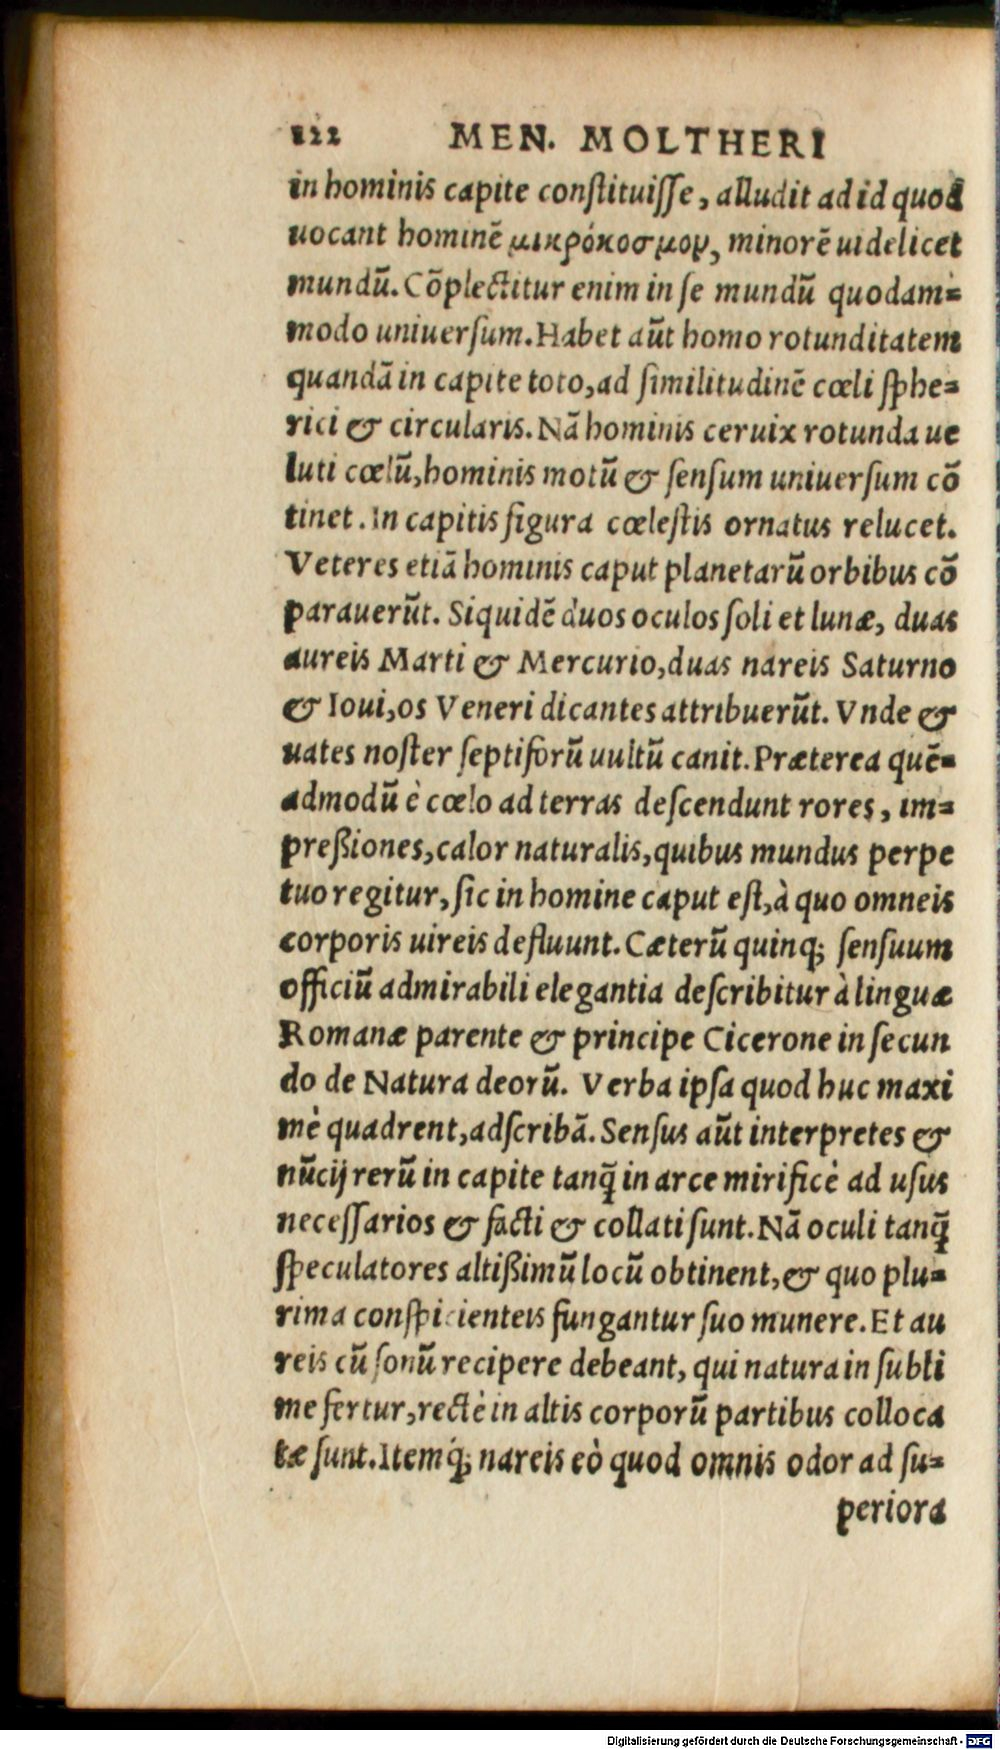 122 MEN. MOLTHERI
in hominis capite conſtituiſſe, alludit ad id quod
uocant hominē μικρόκοσμον, minorē uidelicet
mundū. Cōplectitur enim in ſe mundū quodam=
modo uniuerſum. Habet aūt homo rotunditatem
quandā in capite toto, ad ſimilitudinē cœli ſphe=
rici & circularis. Nā hominis ceruix rotunda ue
luti cœlū, hominis motū & ſenſum uniuerſum cō
tinet. In capitis figura cœleſtis ornatus relucet.
Veteres etiā hominis caput planetarū orbibus cō
parauerūt. Siquidē duos oculos ſoli et lunæ, duas
aureis Marti & Mercurio, duas nareis Saturno
& Ioui, os Veneri dicantes attribuerūt. Vnde &
uates noſter ſeptiforū uultū canit. Præterea quē=
admodū è cœlo ad terras deſcendunt rores, im=
preßiones, calor naturalis, quibus mundus perpe
tuo regitur, ſic in homine caput eſt, à quo omneis
corporis uireis defluunt. Cæterū quinq; ſenſuum
officiū admirabili elegantia deſcribitur à linguæ
Romanæ parente & principe Cicerone in ſecun
do de Natura deorū. Verba ipſa quod huc maxi
mè quadrent, adſcribā. Senſus aūt interpretes &
nūcij rerū in capite tanq̄ in arce mirificè ad uſus
neceſſarios & facti & collati ſunt. Nā oculi tanq̄
ſpeculatores altißimū locū obtinent, & quo plu=
rima conſpicienteis fungantur ſuo munere. Et au
reis cū ſonū recipere debeant, qui natura in ſubli
me fertur, rectè in altis corporū partibus colloca
tæ ſunt. Itemq́; nareis eò quod omnis odor ad ſu=
periora
Digitalisierung gefördert durch die Deutsche Forschungsgemeinschaft - DFG